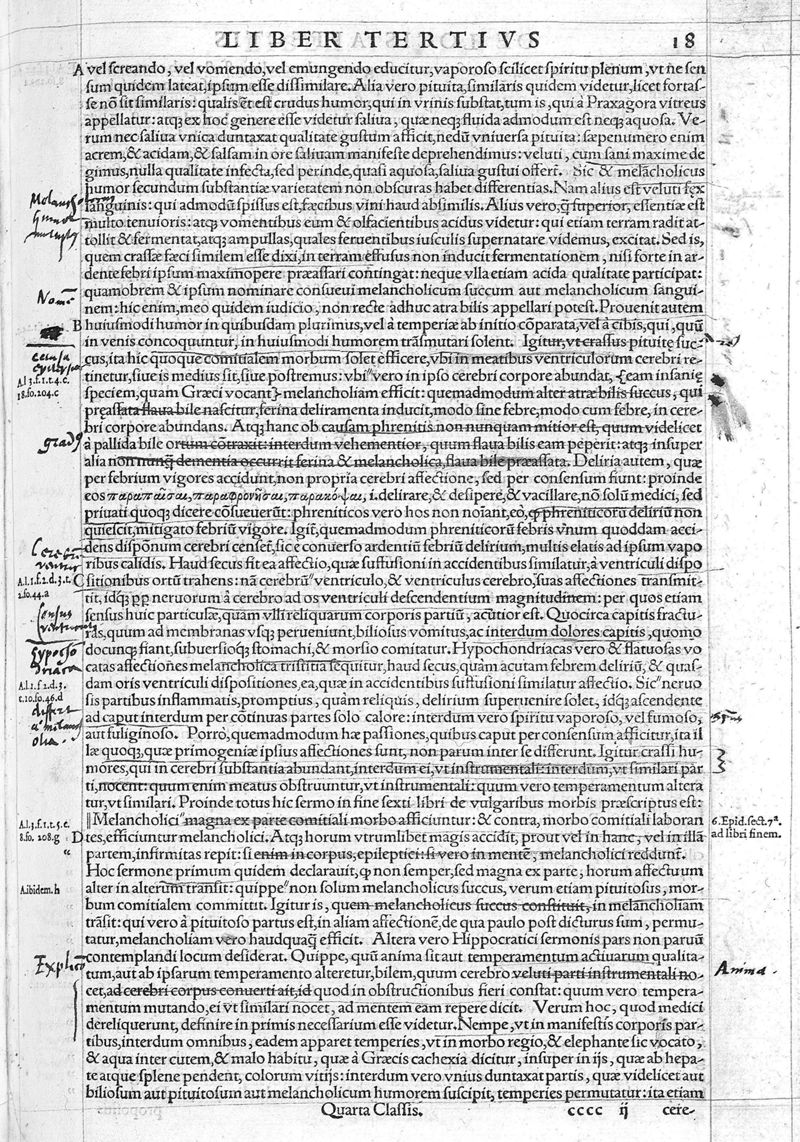 LIBER TERTIVS 18
A vel screando, vel vomendo, vel emungendo educitur, vaporoso scilicet spiritu plenum, vt ne sen
sum quidem lateat, ipsum esse dissimilare. Alia vero pituita, similaris quidem videtur, licet fortas-
se nõ sit similaris: qualis est crudus humor, qui in vrinis substat, tum is, qui à Praxagora vitreus
appellatur: atqȝ ex hoc genere esse videtur saliua, quæ neqȝ fluida admodum est neqȝ aquosa. Ve-
rum nec saliua vnica duntaxat qualitate gustum afficit, nedũ vniuersa pituita: sæpenumero enim
acrem, & acidam, & salsam in ore saliuam manifeste deprehendimus: veluti, cum sani maxime de
gimus, nulla qualitate infecta, sed perinde, quasi aquosa, saliua gustui offert. Sic & melãcholicus
humor secundum substantiæ varietatem non obscuras habet differentias. Nam alius est veluti fęx
sanguinis: qui admodũ spissus est, fæcibus vini haud absimilis. Alius vero, q̃ superior, essentiæ est
multo tenuioris: atqȝ vomentibus eum & olfacientibus acidus videtur: qui etiam terram radit at-
tollit & fermentat, atqȝ ampullas, quales feruentibus iusculis supernatare videmus, excitat. Sed is,
quem crassæ fæci similem esse dixi, in terram effusus non inducit fermentationem, nisi forte in ar-
dente febri ipsum maximopere præassari contingat: neque vlla etiam acida qualitate participat:
quamobrem & ipsum nominare consueui melancholicum succum aut melancholicum sangui-
nem: hic enim, meo quidem iudicio, non recte adhuc atra bilis appellari potest. Prouenit autem
B huiusmodi humor in quibusdam plurimus, vel à temperie ab initio cõparata, vel à cibis, qui, quũ
in venis concoquuntur, in huiusmodi humorem trãsmutari solent. Igitur, vt crassus pituitę suc-
cus, ita hic quoque comitialem morbum solet efficere, vbi in meatibus ventriculorum cerebri re-
tinetur, siue is medius sit, siue postremus: vbi vero in ipso cerebri corpore abundat, {eam insanię
speciem, quam Græci vocant} melancholiam efficit: quemadmodum alter atræ bilis succus, qui
preassata flaua bile nascitur, ferina deliramenta inducit, modo sine febre, modo cum febre, in cere-
bri corpore abundans. Atqȝ hanc ob causam phrenitis non nunquam mitior est, quum videlicet
à pallida bile ortum cõtraxit: interdum vehementior, quum flaua bilis eam peperit: atqȝ insuper
alia non nunq̃ dementia occurrit ferina & melancholica, flaua bile præassata. Deliria autem, quæ
per febrium vigores accidunt, non propria cerebri affectione, sed per consensum fiunt: proinde
eos παραπαῖσαι, παραφρονῆσαι, παρακόψαι, i. delirare, & desipere, & vacillare, nõ solũ medici, sed
priuati quoqȝ dicere cõsueuerũt: phreniticos vero hos non noĩant, eo, ꝙ phreniticorũ deliriũ non
quiescit, mitigato febriũ vigore. Igit, quemadmodum phreniticorũ febris vnum quoddam acci-
dens disponũm cerebri censet, sic e conuerso ardentiũ febriũ delirium, multis elatis ad ipsum vapo
ribus calidis. Haud secus fit ea affectio, quæ suffusioni in accidentibus similatur, à ventriculi dispo
C sitionibus ortũ trahens: nã cerebrũ ventriculo, & ventriculus cerebro, suas affectiones transmit-
tit, idqȝ ꝓꝑ neruorum à cerebro ad os ventriculi descendentium magnitudinem: per quos etiam
sensus huic particulæ, quàm vlli reliquarum corporis partiũ, acutior est. Quocirca capitis fractu-
ras, quum ad membranas vsqȝ perueniunt, biliosus vomitus, ac interdum dolores capitis, quomo
docunqȝ fiant, subuersioqȝ stomachi, & morsio comitatur. Hypochondriacas vero & flatuosas vo
catas affectiones melancholica tristitia sequitur, haud secus, quàm acutam febrem deliriũ, & quas-
dam oris ventriculi dispositiones, ea, quæ in accidentibus suffusioni similatur affectio. Sic neruo
sis partibus inflammatis, promptius, quàm reliquis, delirium superuenire solet, idqȝ ascendente
ad caput interdum per cõtinuas partes solo calore: interdum vero spiritu vaporoso, vel fumoso,
aut fuliginoso. Porro, quemadmodum hæ passiones, quibus caput per consensum afficitur, ita il
læ quoqȝ, quæ primogeniæ ipsius affectiones sunt, non parum inter se differunt. Igitur crassi hu-
mores, qui in cerebri substantia abundant, interdum ei, vt instrumentali: interdum, vt similari par
ti, nocent: quum enim meatus obstruuntur, vt instrumentali: quum vero temperamentum altera
tur, vt similari. Proinde totus hic sermo in fine sexti libri de vulgaribus morbis præscriptus est:
Melancholici magna ex parte comitiali morbo afficiuntur: & contra, morbo comitiali laboran
D tes, efficiuntur melancholici. Atqȝ horum vtrumlibet magis accidit, prout vel in hanc, vel in illã
partem, infirmitas repit: si enim in corpus, epileptici: si vero in mentẽ, melancholici reddunt̃.
Hoc sermone primum quidem declarauit, ꝙ non semper, sed magna ex parte, horum affectuum
alter in alterum transit: quippe non solum melancholicus succus, verum etiam pituitosus, mor-
bum comitialem committit. Igitur is, quem melancholicus succus constituit, in melancholiam
trãsit: qui vero à pituitoso partus est, in aliam affectionẽ, de qua paulo post dicturus sum, permu-
tatur, melancholiam vero haudquaq̃ efficit. Altera vero Hippocratici sermonis pars non paruũ
contemplandi locum desiderat. Quippe, quũ anima sit aut temperamentum actiuarum qualita-
tum, aut ab ipsarum temperamento alteretur, bilem, quum cerebro veluti parti instrumentali no-
cet, ad cerebri corpus conuerti ait, id quod in obstructionibus fieri constat: quum vero tempera-
mentum mutando, ei vt similari nocet, ad mentem eam repere dicit. Verum hoc, quod medici
dereliquerunt, definire in primis necessarium esse videtur. Nempe, vt in manifestis corporis par-
tibus, interdum omnibus, eadem apparet temperies, vt in morbo regio, & elephante sic vocato,
& aqua inter cutem, & malo habitu, quæ à Græcis cachexia dicitur, insuper in ijs, quæ ab hepa-
te atque splene pendent, colorum vitijs: interdum vero vnius duntaxat partis, quæ videlicet aut
biliosum aut pituitosum aut melancholicum humorem suscipit, temperies permutatur: ita etiam
Quarta Classis. cccc ij cere-
Nome
causa
epilepsiæ
A.l 3.f.1.t.4.c.
18.fo.204.c
A.l.1.f.2.d.3.t.
2.fo.44.a
A.l.1.f.2.d.3.
t.10.fo.46.d
differt
A.l.3.f.1.t.5.c.
8.fo.208.g
A.ibidem.h
6.Epid.sect.7ª.
ad libri finem.
Anima.